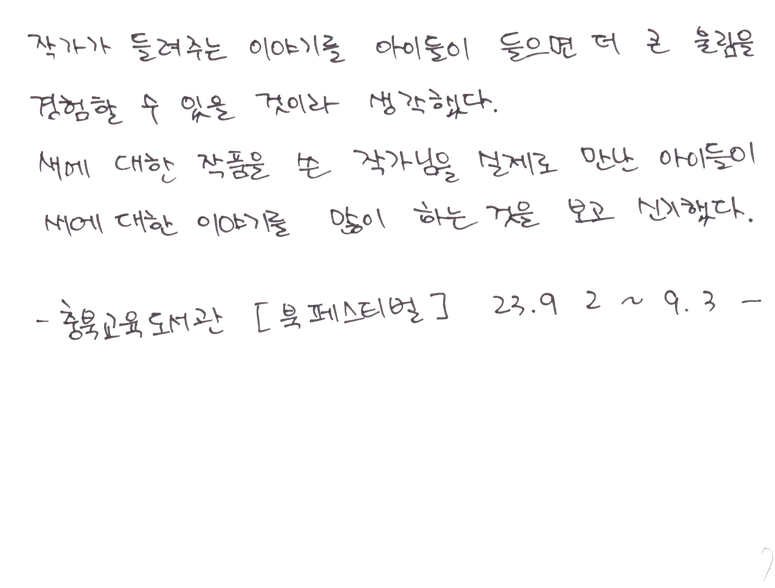 작가가 들려주는 이야기를 아이들이 들으면 더 큰 울림을
경험할 수 있을 것이라 생각했다.
새에 대한 작품을 쓴 작가님을 실제로 만난 아이들이
새에 대한 이야기를 많이 하는 것을 보고 신기했다.
- 충북교육도서관 [북페스티벌] 23.9 2 ~ 9.3 -